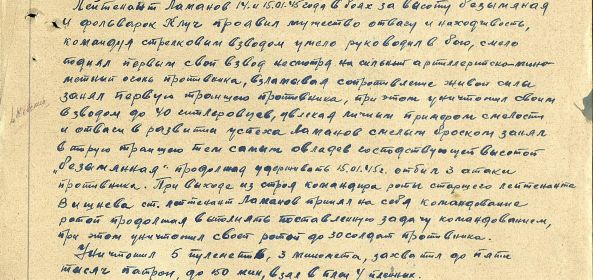 Лейтенант Ламанов 14 и 15.01.45 года в боях за высоту безымяная
и фольварок Клуч проявил мужество отвагу и находчивость,
командуя стрелковым взводом умело руководил в бою, смело
поднял первым свой взвод несмотря на сильный артиллериско-мино-
метный огонь противника, взламывая сопротивление живой силы
занял первую траншею противника, при этом уничтожил своим
взводом до 40 гитлеровцев, увлекая личным примером смелости
и отваги в развитии успеха Ламанов смелым броском занял
вторую траншею тем самым овладев господствующей высотой
"безымянная" продолжая удерживать 15.01.45г. отбил 3 атаки
противника. При выходе из строя командира роты старшего лейтенанта
Вишнева ст. лейтенант Ламанов принял на себя командование
ротой продолжая выполнять поставленную задачу командованием,
при этом уничтожил своей ротой до 30 солдат противника.
Уничтожил 5 пулеметов, 3 миномета, захватил до пяти
тысяч патрон, до 150 мин, взял в плен 4 пленных.